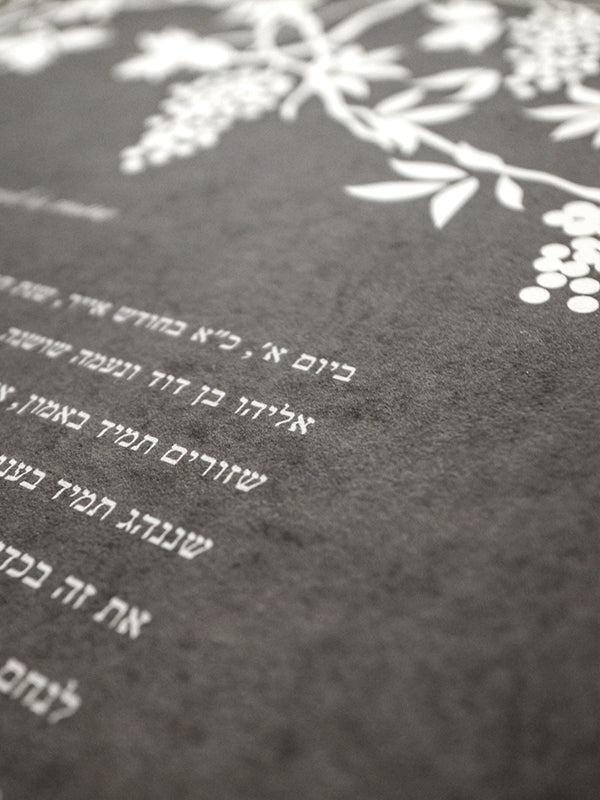 ביום א', כ"א בחודש אייר, שנת
אליהו בן דוד ונעמה שושנה
שזורים תמיד באמון,
שננהג תמיד
את זה
לנחם